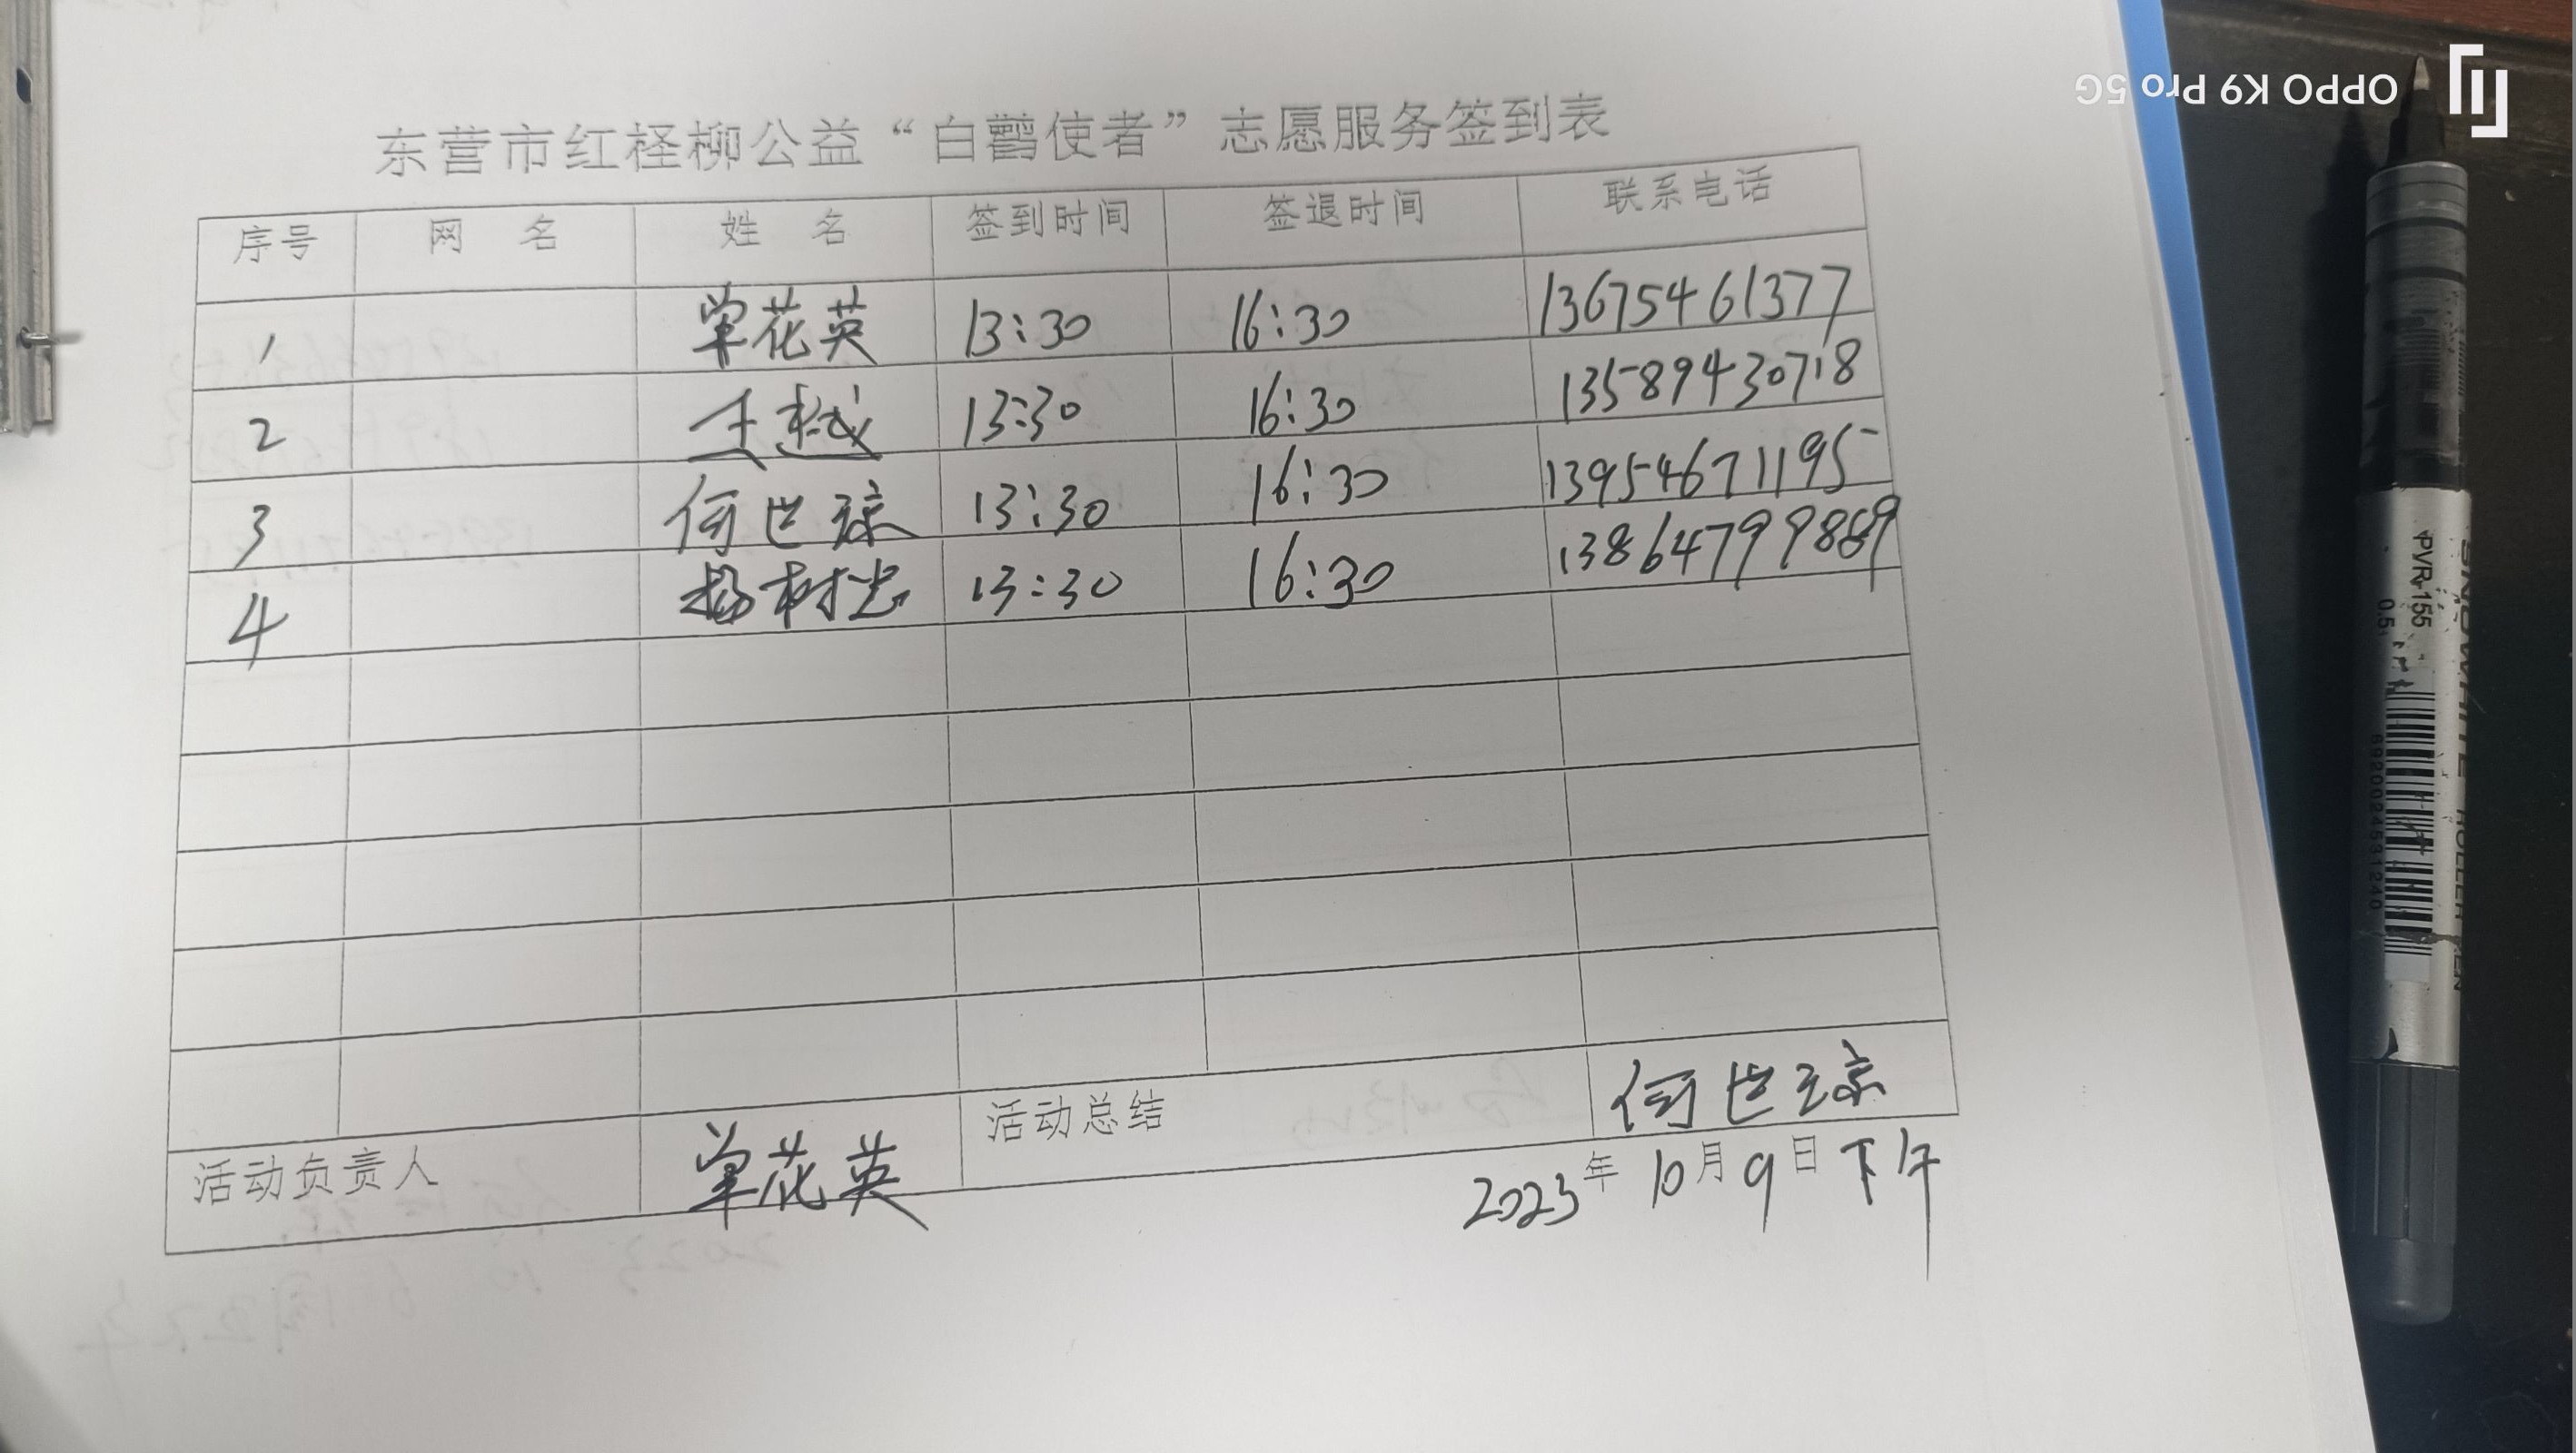 东营市红柽柳公益“白鹳使者”志愿服务签到表
序号 网 名 姓 名 签到时间 签退时间 联系电话
1 单花英 13:30 16:30 13675461377
2 王越 13:30 16:30 13589430718
3 何世琼 13:30 16:30 13954671195
4 杨树忠 13:30 16:30 13864799889
活动负责人 单花英 活动总结 何世琼
2023年10月9日下午
OPPO K9 Pro 5G
PVR-155
0.5
6920024531240